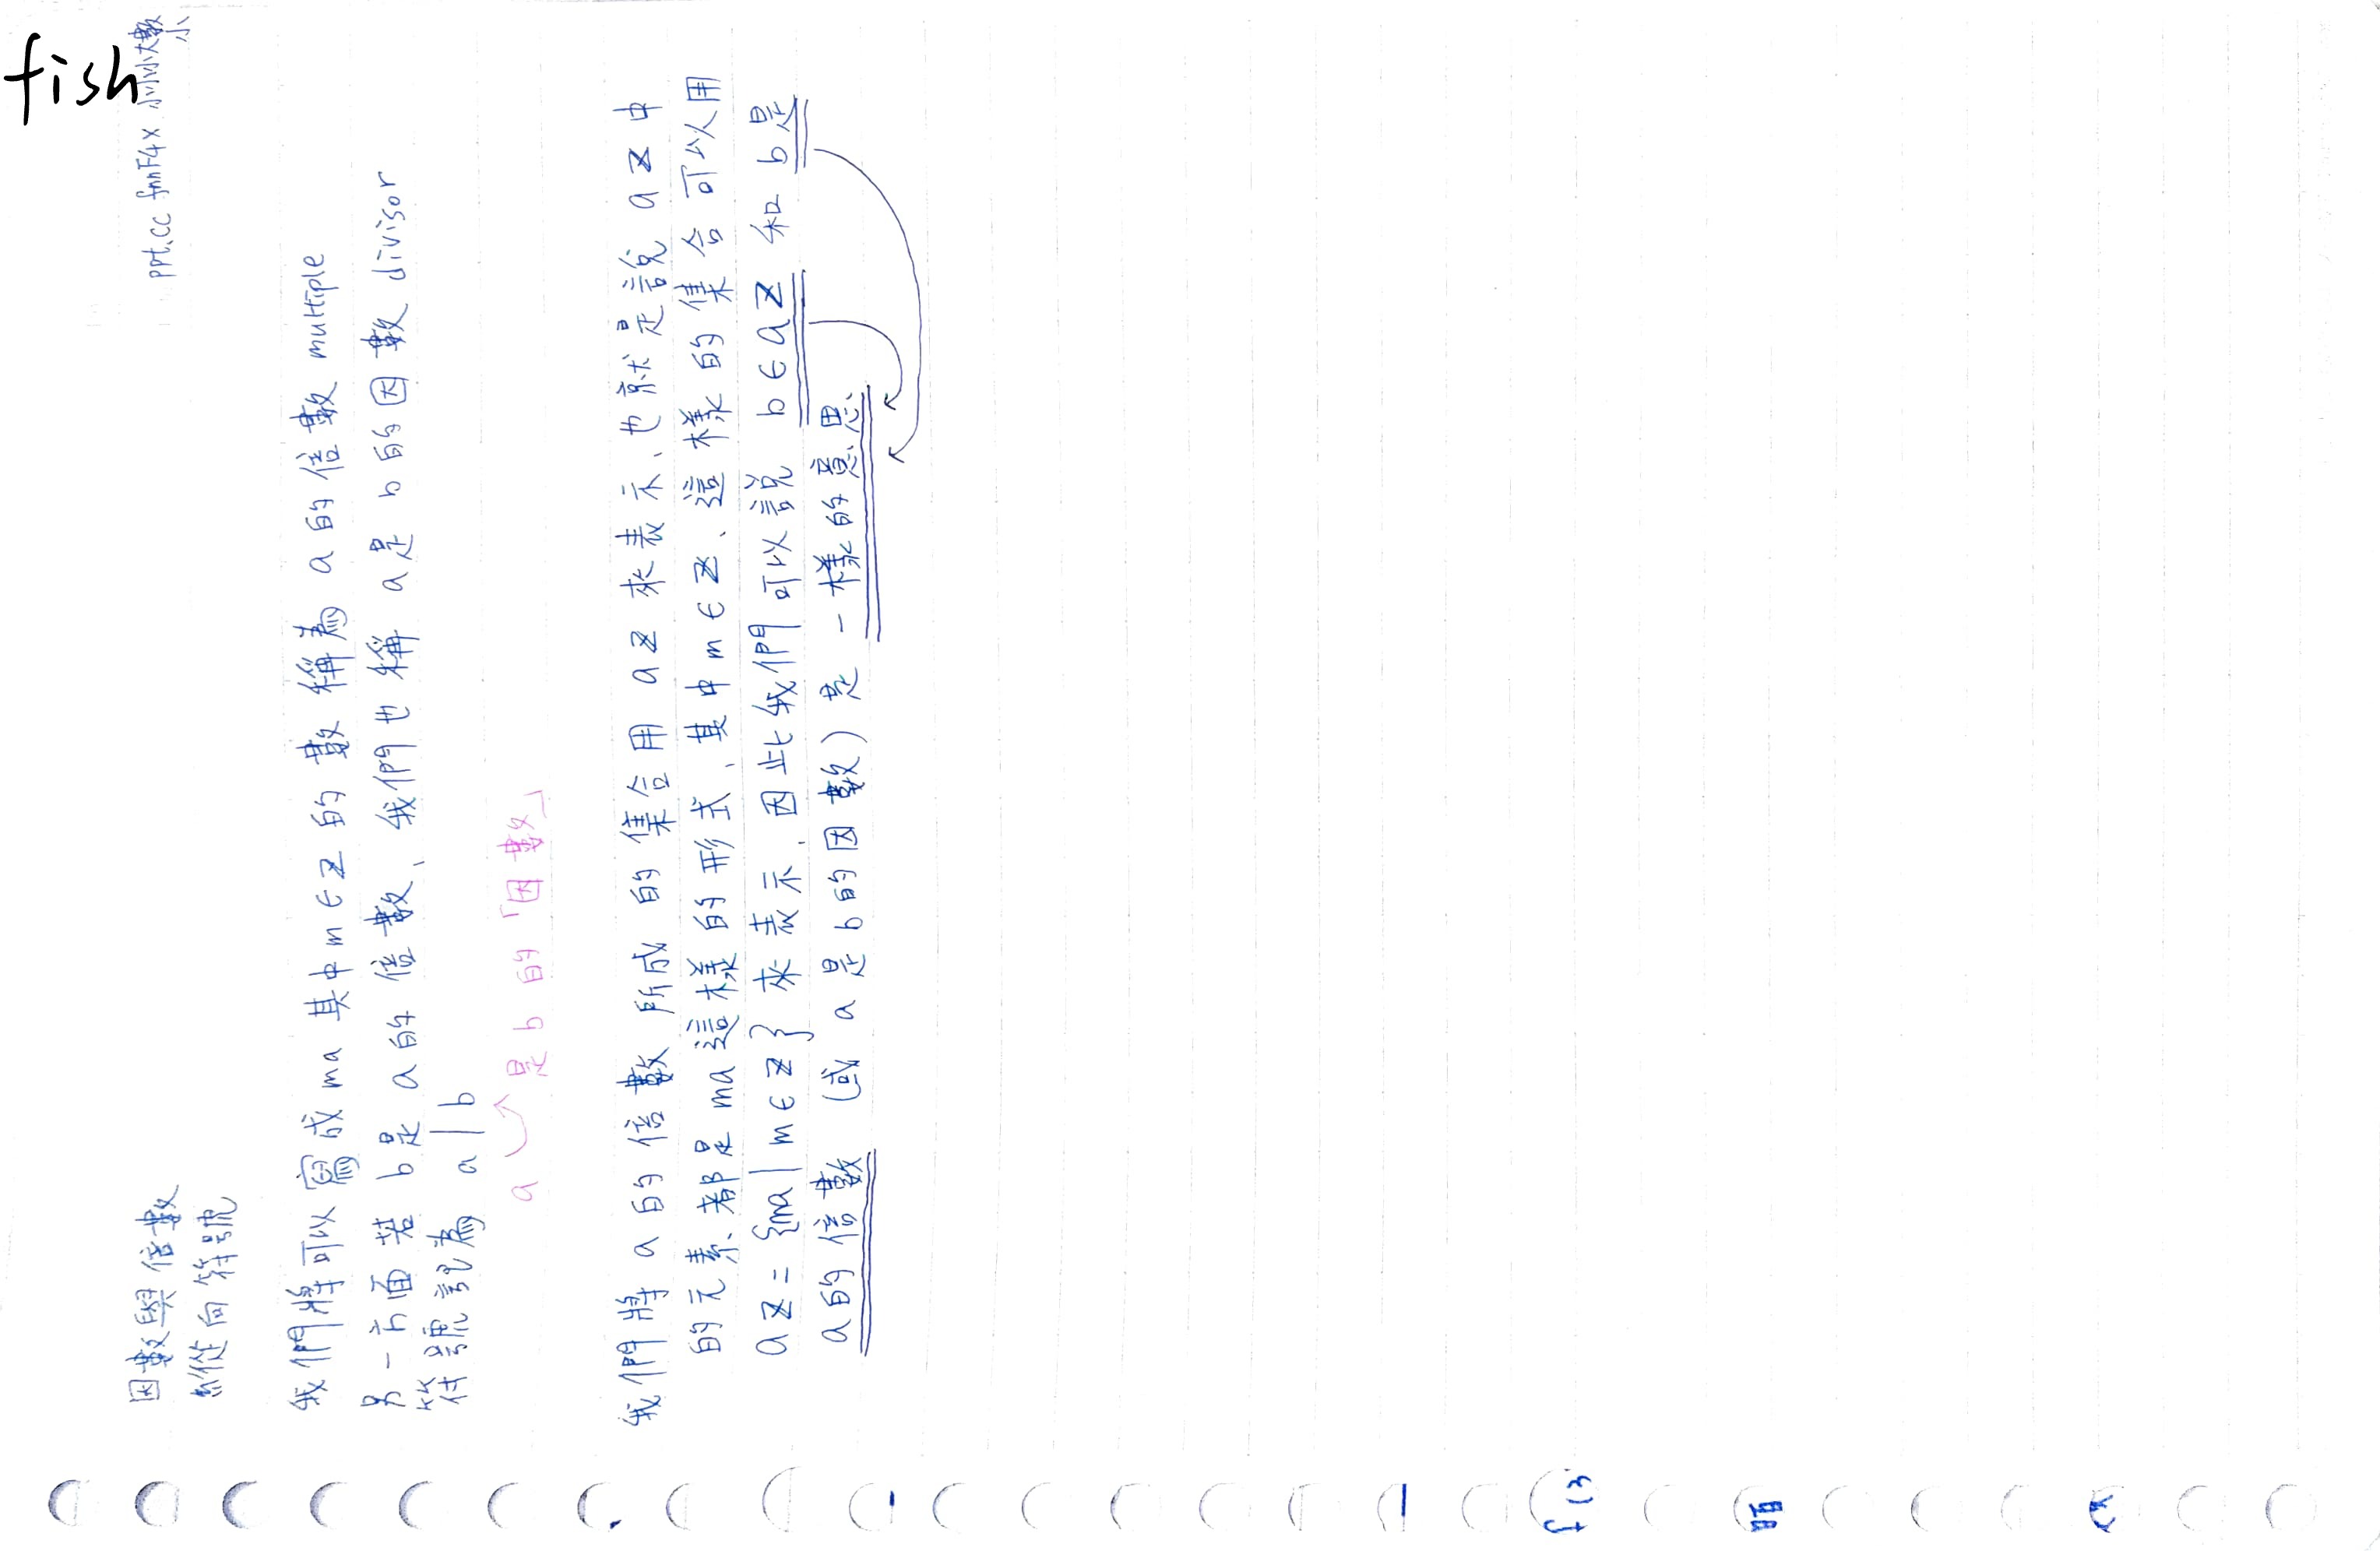 fish
ppt.cc fnnF4x 小小小大數
小
因數與倍數
縱向符號
我們將可以寫成 ma 其中 m ∈ Z 的數稱為 a 的倍數 multiple
另一方面若 b 是 a 的倍數、我們也稱 a 是 b 的因數 divisor
符號記為 a | b
a 是 b 的「因數」
我們將 a 的倍數所成的集合用 aZ 來表示、也就是說 aZ 中
的元素、都是 ma 這樣的形式、其中 m ∈ Z、這樣的集合可以用
aZ = {ma | m ∈ Z} 來表示、因此我們可以說 b ∈ aZ 和 b 是
a 的倍數 (或 a 是 b 的因數) 是一樣的意思